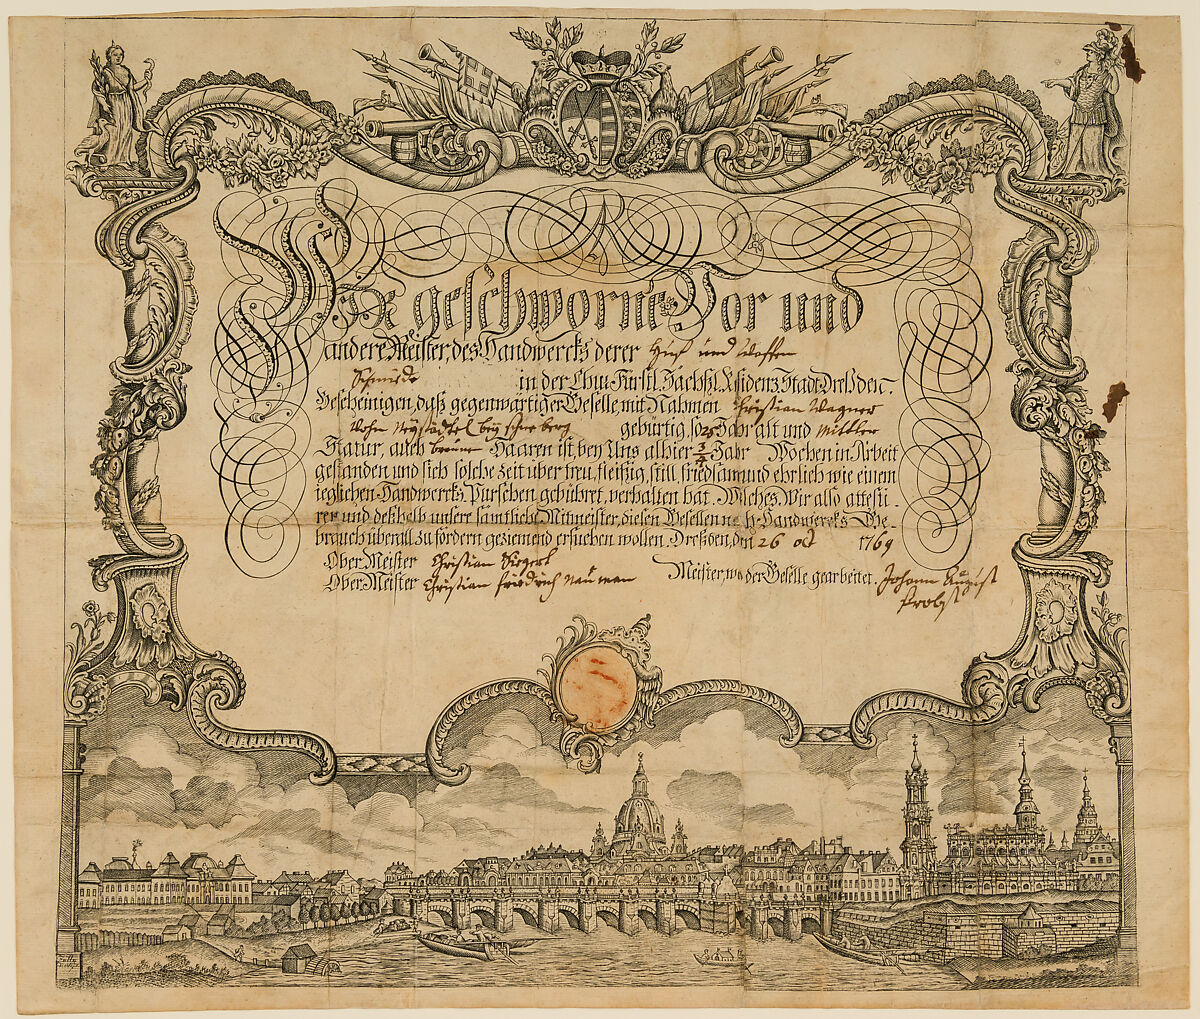 Wir geschworne Vor und
andere Meister, des Handwercks derer Huf und Waffen
Schmiede in der Chur Fürstl. Sächßl. Residenz Stadt Dreßden.
Bescheinigen, daß gegenwärtiger Geselle mit Nahmen Christian Wagner
Neustädtel bey Schneeberg gebürtig, so 25 Jahr alt und mittler
Statur, auch braune Haaren ist, bey Uns alhier 3/4 Jahr Wochen in Arbeit
gestanden und sich solche Zeit über treu, fleißig, still, friedsam und ehrlich wie einem
ieglichen Handwercks Purschen gebühret, verhalten hat. Welches Wir also attesti
ren und deßhalb unsere sämtliche Mitmeister, diesen Gesellen nach Handwercks Ge-
brauch überall zu fördern geziemend ersuchen wollen. Dreßden, den 26 oct 1769
Ober Meister Christian
Ober Meister Christian Friedrich Nauman
Meister, wo der Geselle gearbeitet. Johann August
Probst